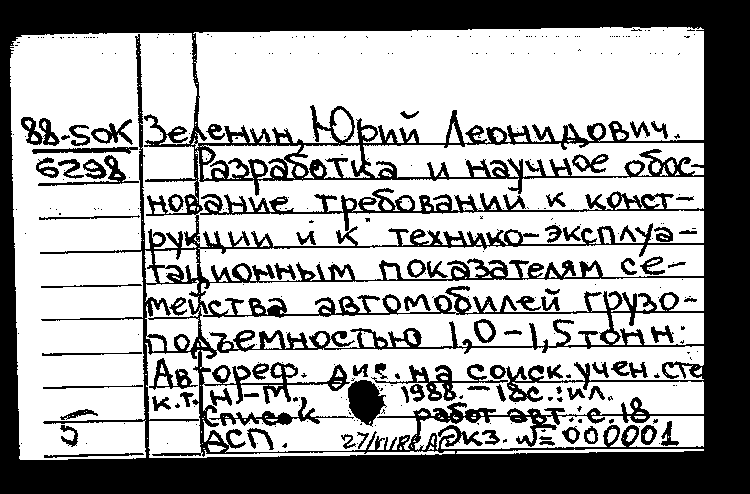 88-5ОК Зеленин, Юрий Леонидович.
6298 Разработка и научное обос-
нование требований к конст-
рукции и к технико-эксплуа-
тационным показателям се-
мейства автомобилей грузо-
подъемностью 1,0-1,5 тонн:
Автореф. дис. на соиск. учен. сте
к.т.н.-М., 1988.-18с.:ил.
Список работ авт.: с.18.
5 АСП. экз. №=000001